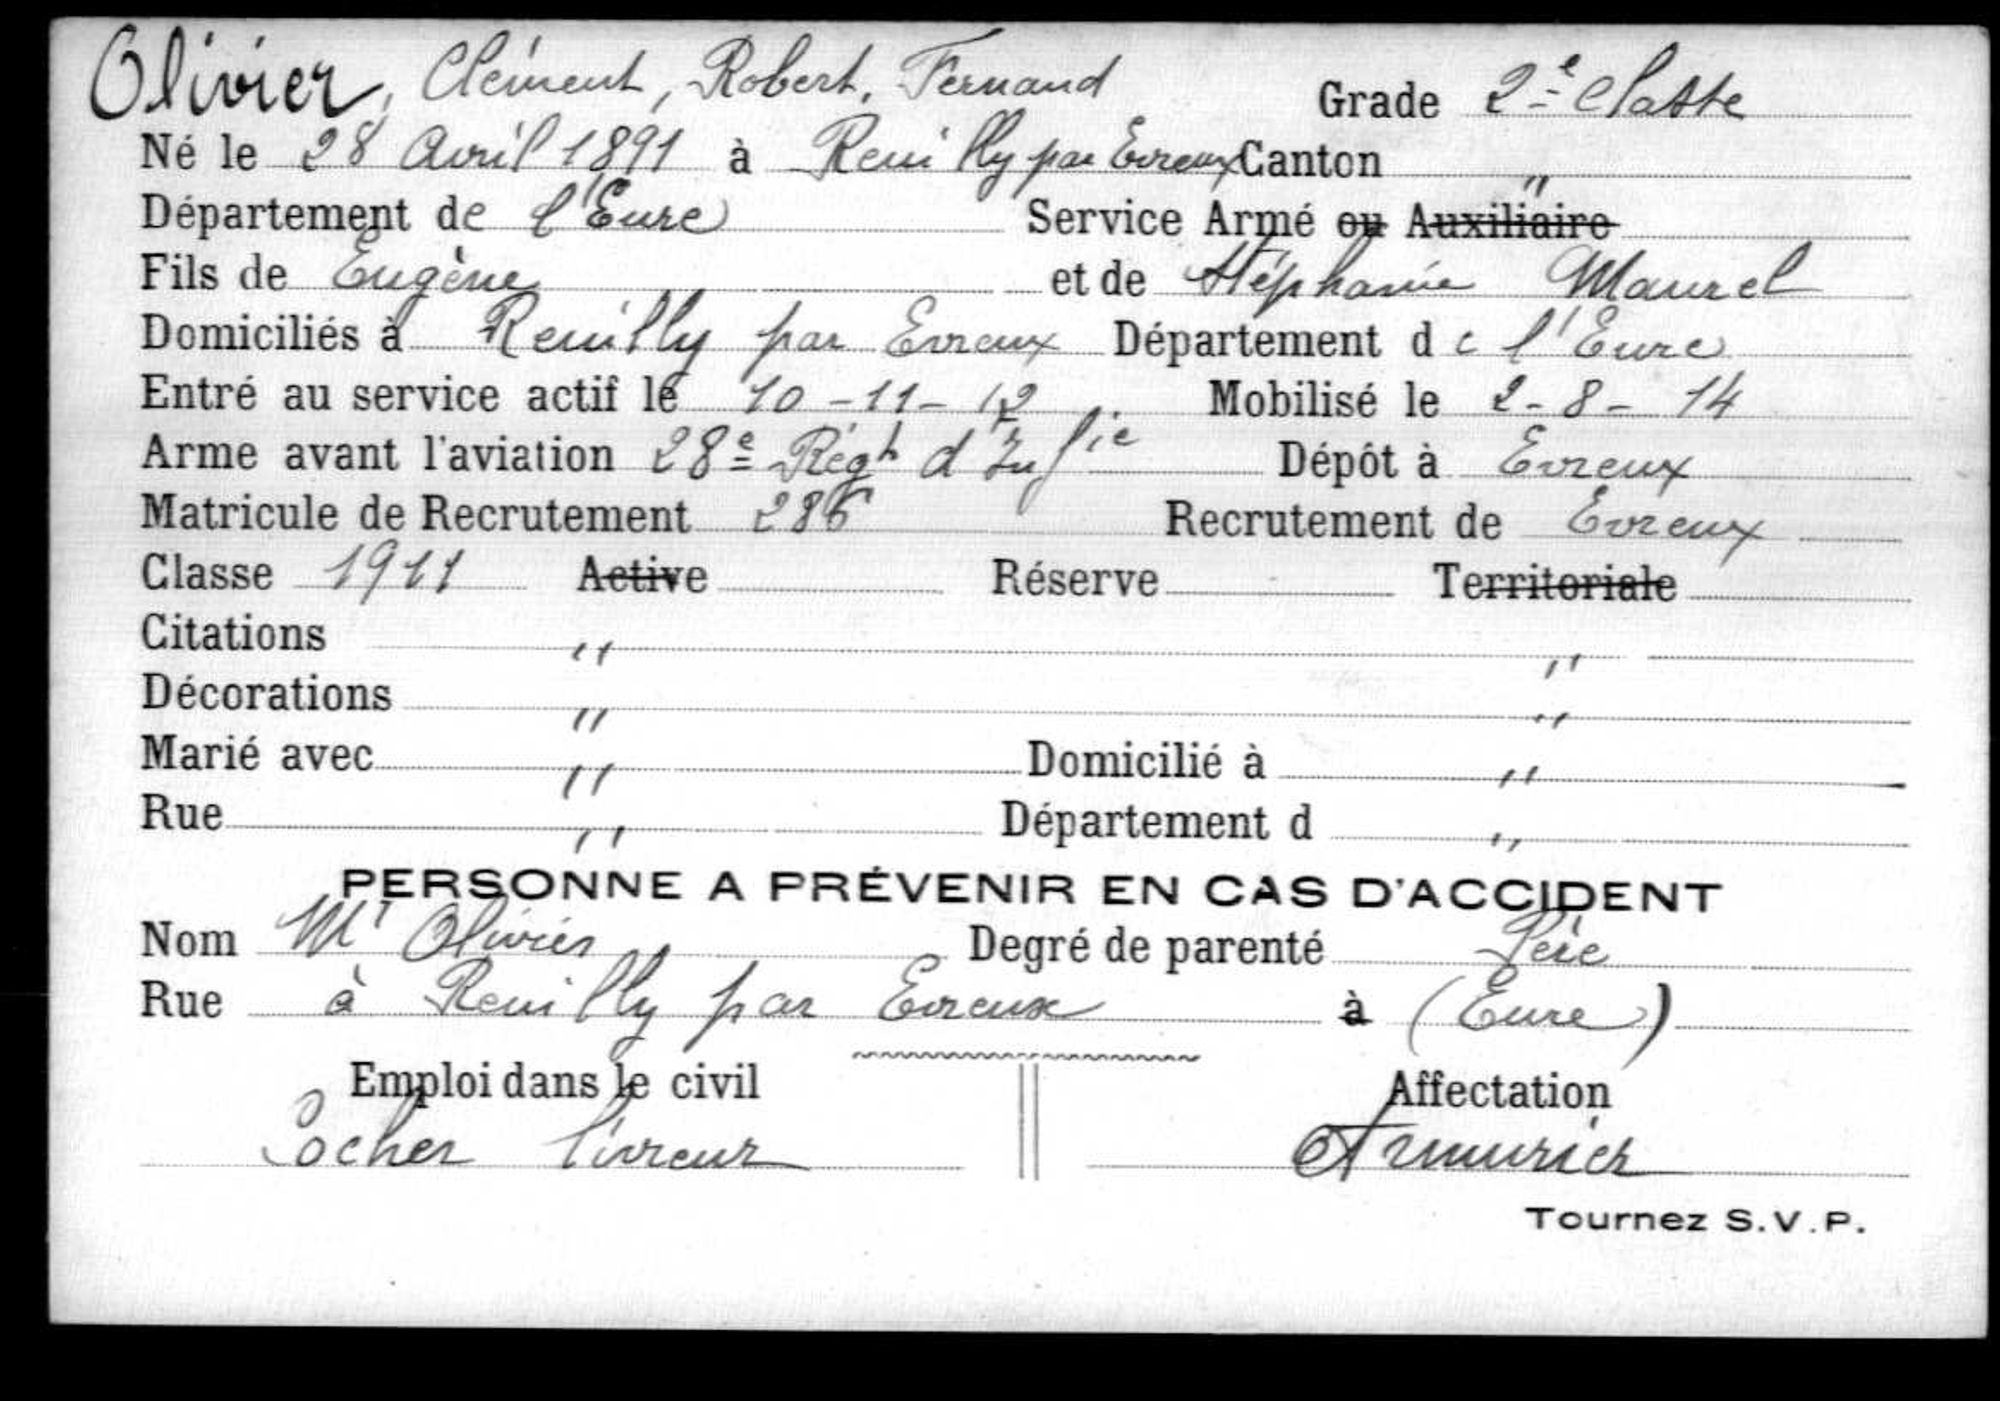 Olivier, Clément, Robert, Fernand Grade 2e Classe
Né le 28 Avril 1891 à Reuilly par Evreux Canton "
Département de l'Eure Service Armé ou Auxiliaire
Fils de Eugène et de Stéphanie Maurel
Domiciliés à Reuilly par Evreux Département de l'Eure
Entré au service actif le 10-11-12 Mobilisé le 2-8-14
Arme avant l'aviation 28e Régt d'Infie Dépôt à Evreux
Matricule de Recrutement 286 Recrutement de Evreux
Classe 1911 Active Réserve Territoriale
Citations " "
Décorations " "
Marié avec " Domicilié à "
Rue " Département d "
PERSONNE A PRÉVENIR EN CAS D'ACCIDENT
Nom Mr Olivier Degré de parenté Père
Rue à Reuilly par Evreux à (Eure)
Emploi dans le civil Affectation
Cocher livreur Armurier
Tournez S.V.P.